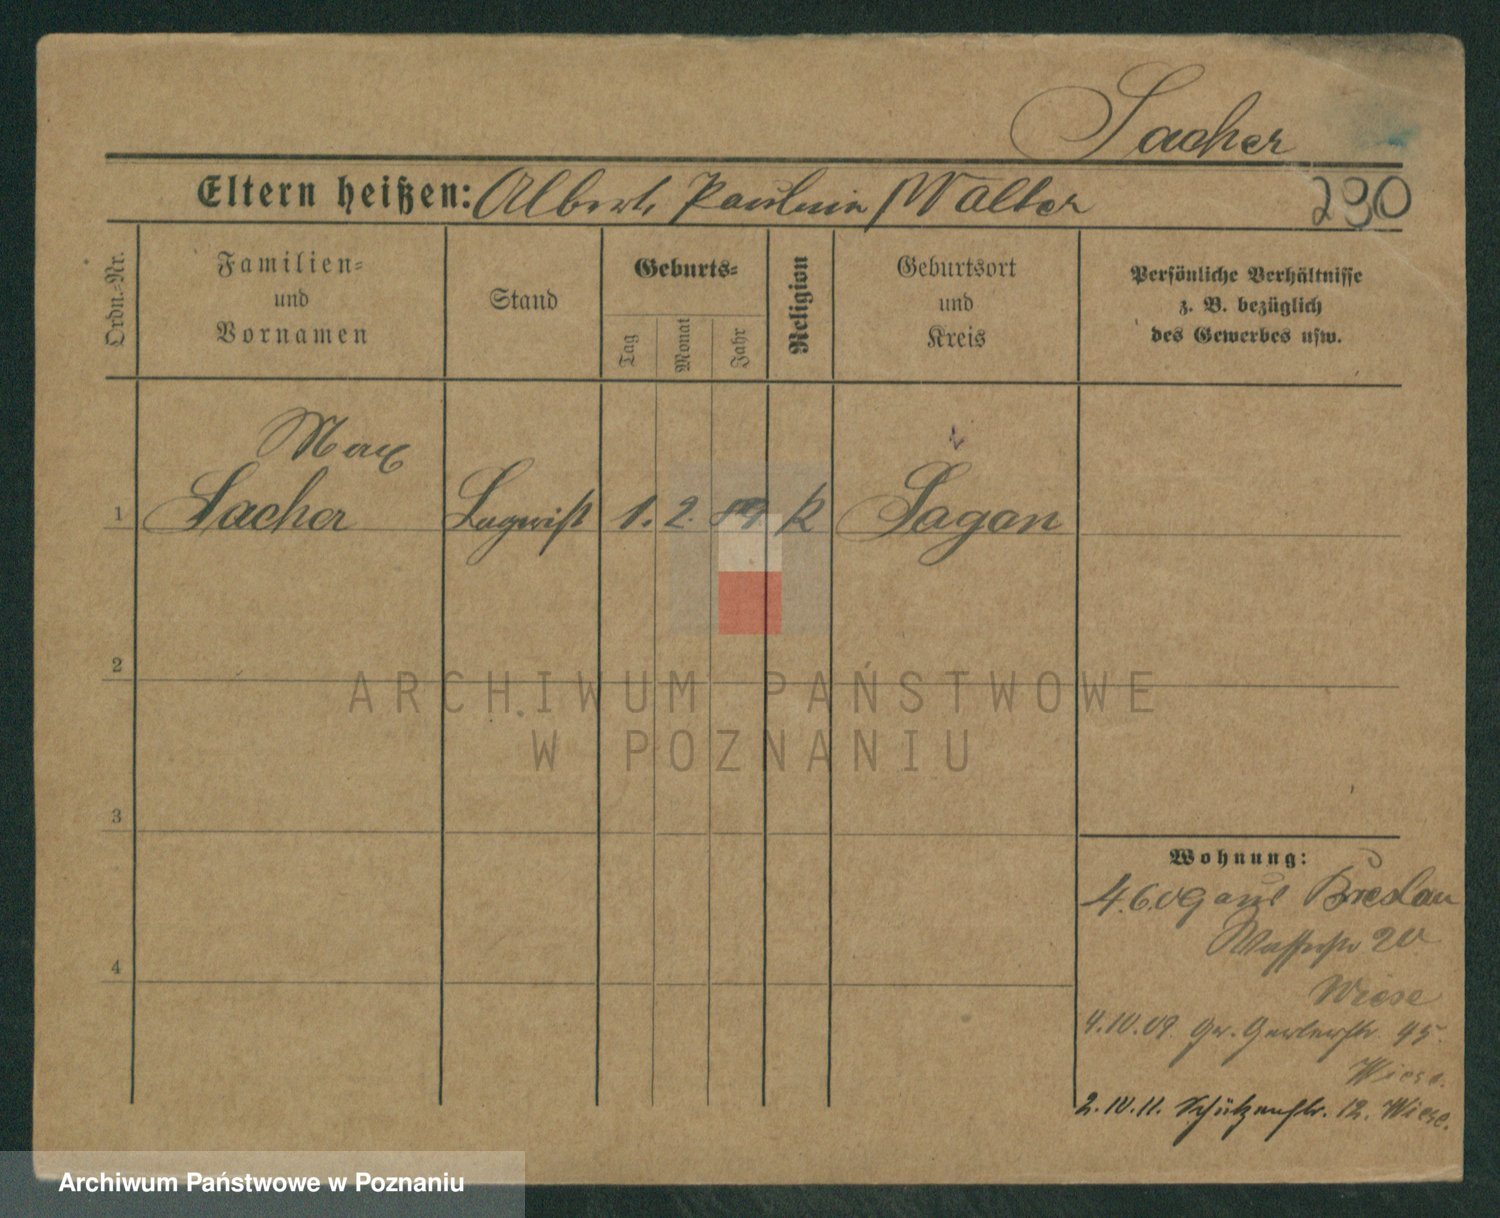 Sacher
Eltern heißen: Albert, Paulinin Walter
290
Ordn.-Nr.
Familien-
und
Vornamen
Stand
Geburts-
Tag
Monat
Jahr
Religion
Geburtsort
und
Kreis
Persönliche Verhältnisse
z. B. bezüglich
des Gewerbes usw.
Max
1 Sacher 1. 2. 89 K Sagan
2
3
4
Wohnung:
4.6.09 aus Breslau
20
Wiese
4.10.09. Gr. Gerberstr. 45.
Wiese.
2.10.11. Schützenstr. 12. Wiese.
ARCHIWUM PAŃSTWOWE
W POZNANIU
Archiwum Państwowe w Poznaniu